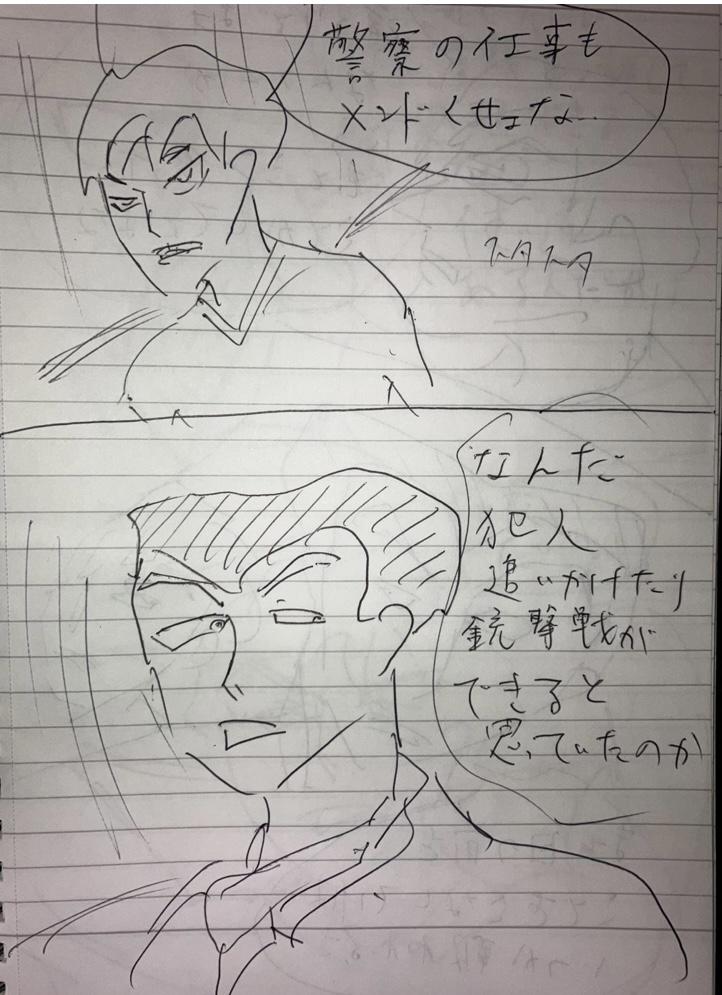 警察の仕事も
メンドくせェな…
スタスタ
なんだ
犯人
追いかけたり
銃撃戦が
できると
思っていたのか